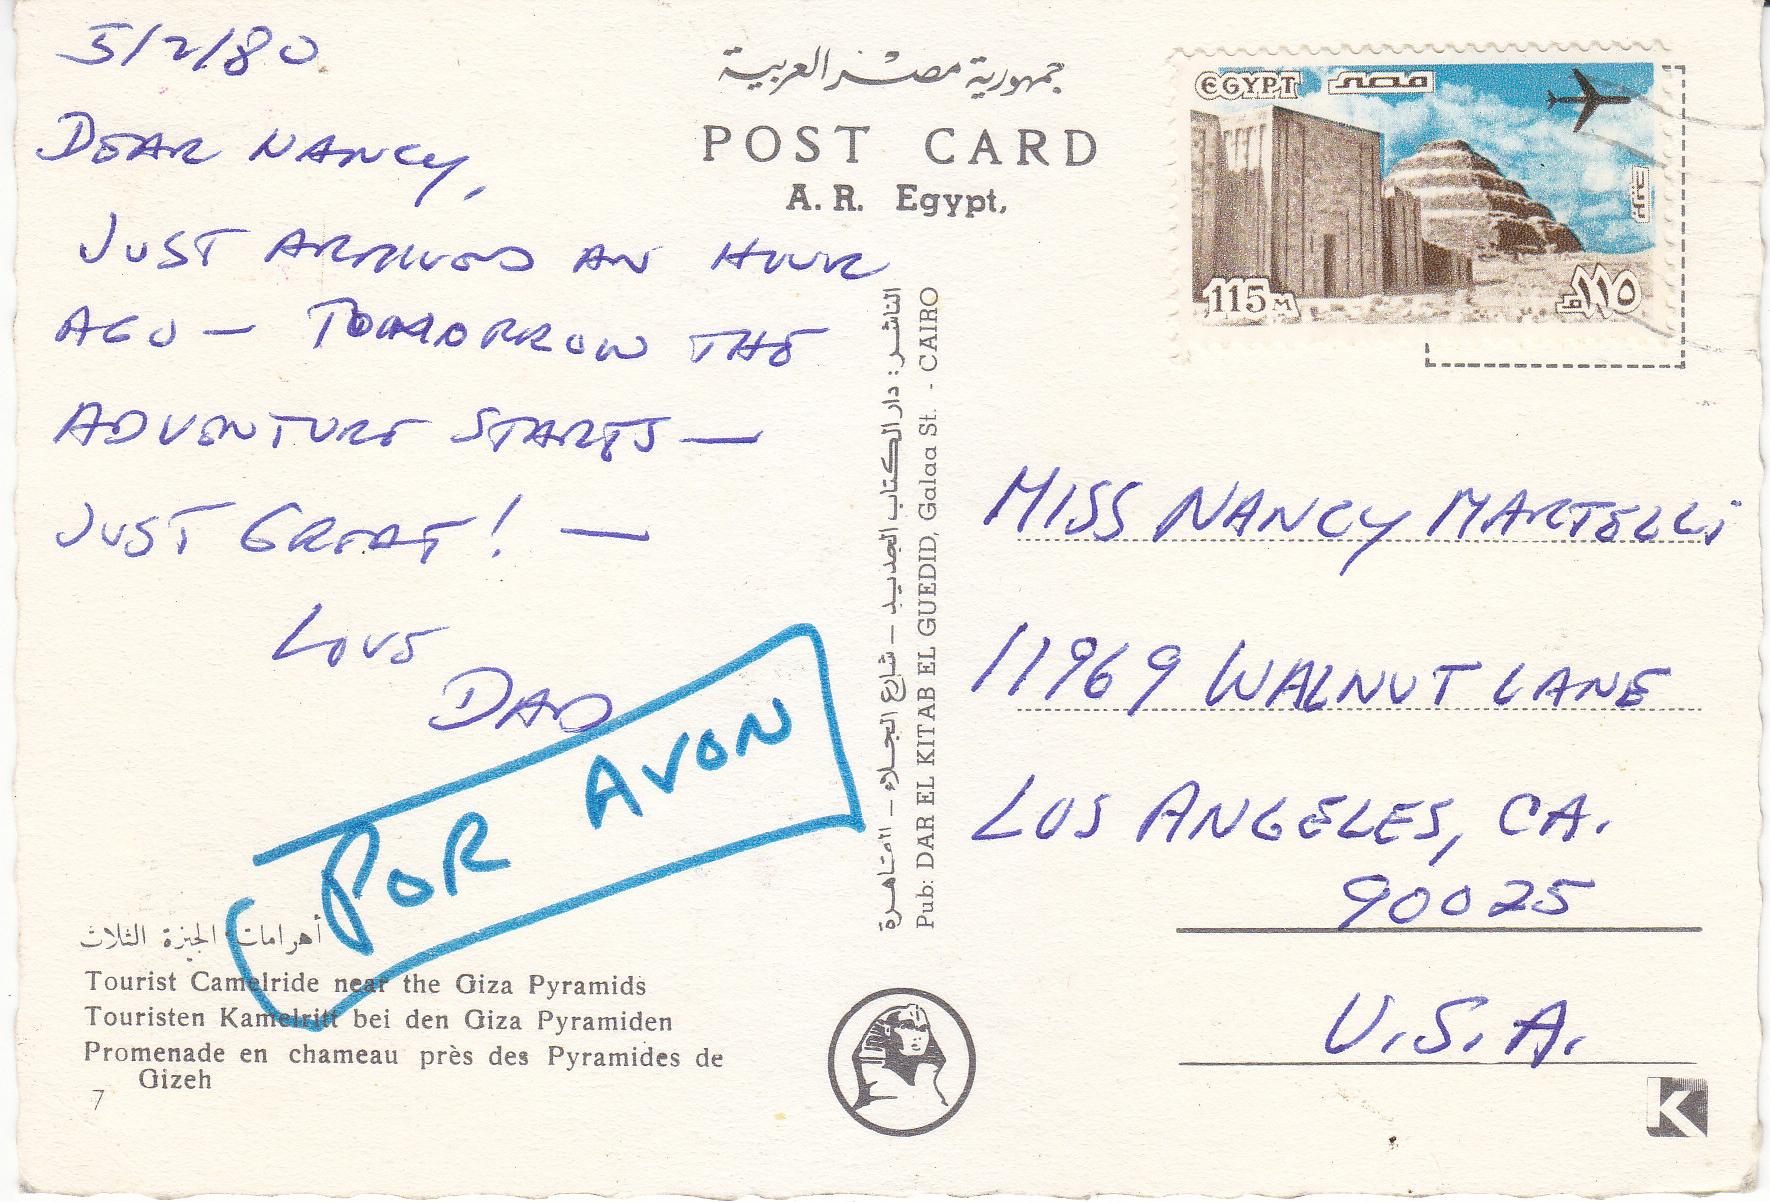 5/2/80
DEAR NANCY,
JUST ARRIVED AN HOUR
AGO — TOMORROW THE
ADVENTURE STARTS —
JUST GREAT! —
LOVE
DAD
POR AVON
أهرامات الجيزة الثلاث
Tourist Camelride near the Giza Pyramids
Touristen Kamelritt bei den Giza Pyramiden
Promenade en chameau près des Pyramides de
Gizeh
7
جمهورية مصر العربية
POST CARD
A. R. Egypt,
الناشر : دار الكتاب الجديد – شارع الجلاء – القاهرة
Pub: DAR EL KITAB EL GUEDID, Galaa St. - CAIRO
EGYPT مصر
بريد
115 M ١١٥ م
MISS NANCY MARTELLI
11969 WALNUT LANE
LOS ANGELES, CA.
90025
U.S.A.
K